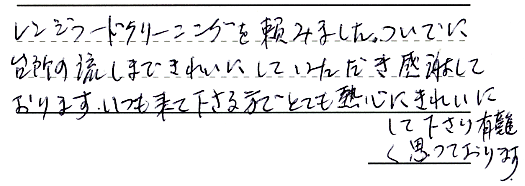 レンジフードクリーニングを頼みました。ついでに
台所の流しまできれいにしていただき感謝して
おります。いつも来て下さる方でとても熱心にきれいに
して下さり有難
く思っております